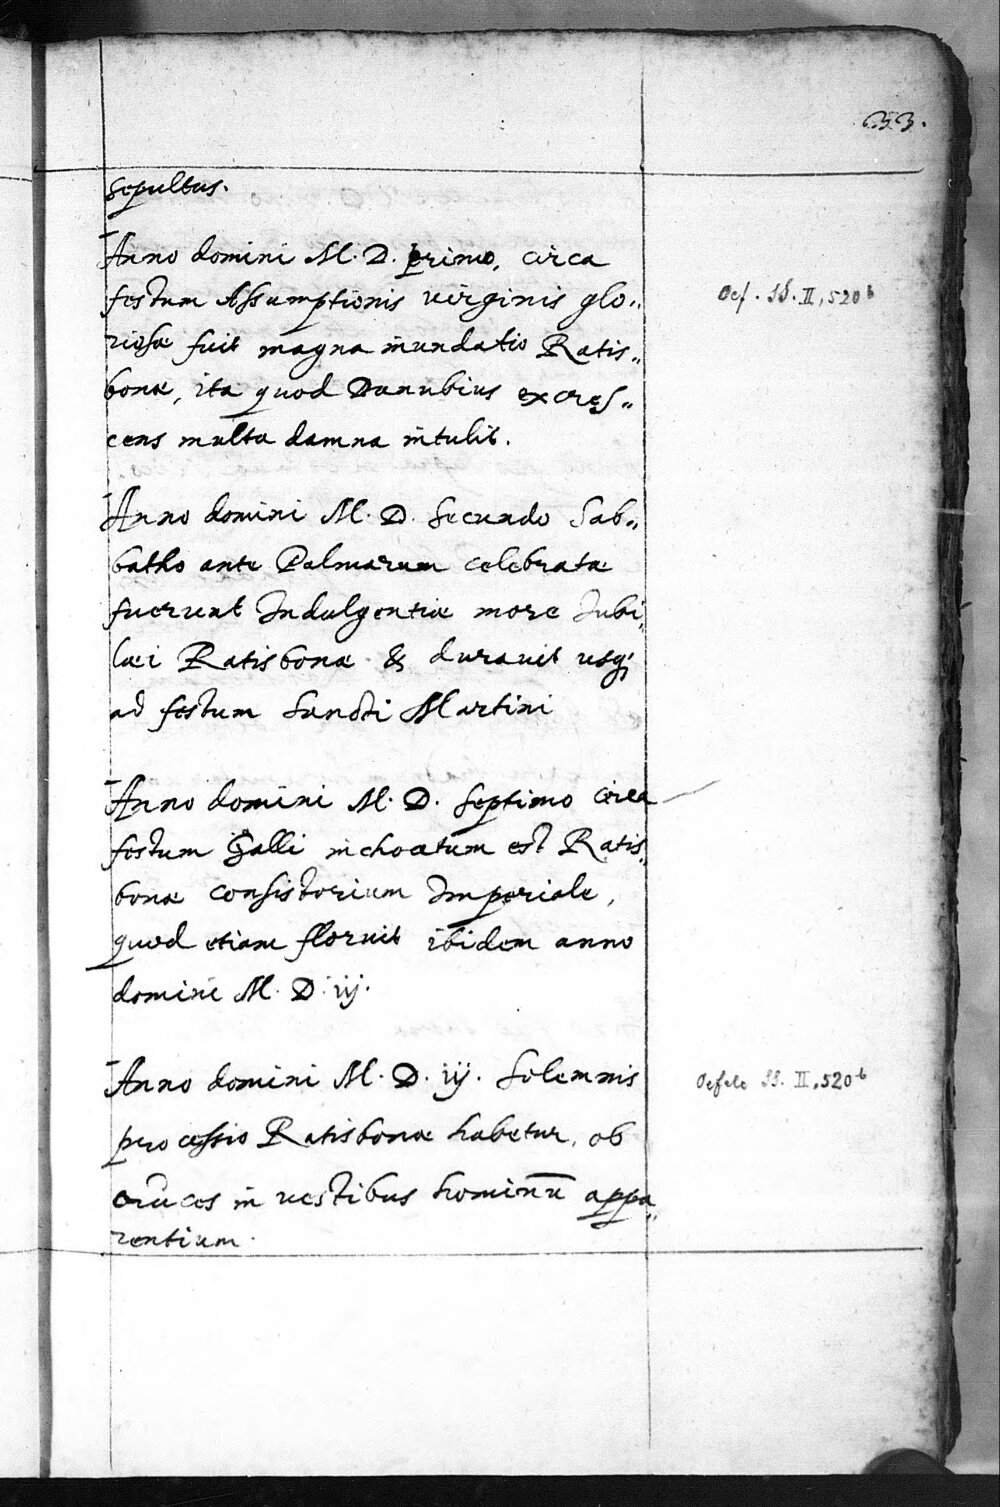 33.
sepultus.
Anno domini M. D. primo, circa
festum Assumptionis virginis glo„
riosæ fuit magna inundatio Ratis„
bonæ, ita quod Danubius excres„
cens multa damna intulit.
Oef. SS. II, 520 b
Anno domini M. D. Secundo Sab„
batho ante Palmarum celebratæ
fuerunt Indulgentiæ more Iubi„
læi Ratisbonæ & durauit usq;
ad festum Sancti Martini
Anno domini M. D. Septimo circa
festum Galli inchoatum est Ratis„
bonæ Consistorium Imperiale,
quod etiam floruit ibidem anno
domini M. D. iij.
Anno domini M. D. iij. Solemnis
processio Ratisbonæ habetur, ob
cruces in vestibus hominū appa„
rentium.
Oefele SS. II, 520 b